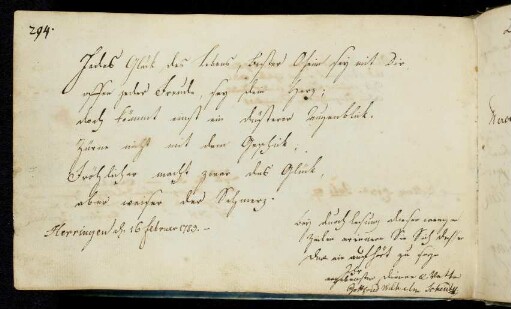 294.
Jedes Glük des Lebens, bester Oheim sey mit Dir,
offen jeder Freude, sey dein Herz;
doch kömmt einst ein düsterer Augenblik,
Zürne nicht mit dem Geschik,
Fröhlicher macht zwar das Glük,
aber weiser der Schmerz.
Herringen d. 16 Februar 1783.
bey durchlesung dieser wenigen
Zeilen erinnern Sie Sich dessen
der nie aufhört zu seyn
Ihr
ergebenster Diener u. Vetter
Wilhelm